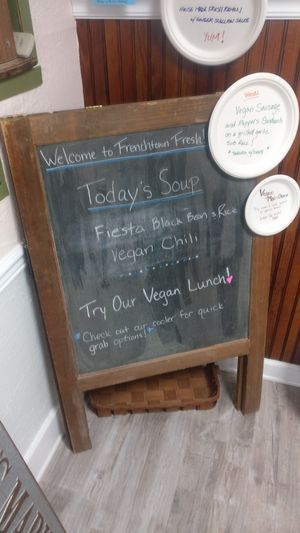 House Made Fresh
w/ Ginger Scallion Sauce
YUM!
Vegan Sausage
and Peppers Sandwich
on a grilled garlic
sub roll!
Vegan
Welcome to Frenchtown Fresh!
Today's Soup
Fiesta Black Bean & Rice
Vegan Chili
Try Our Vegan Lunch!
Check out our cooler for quick
grab options!